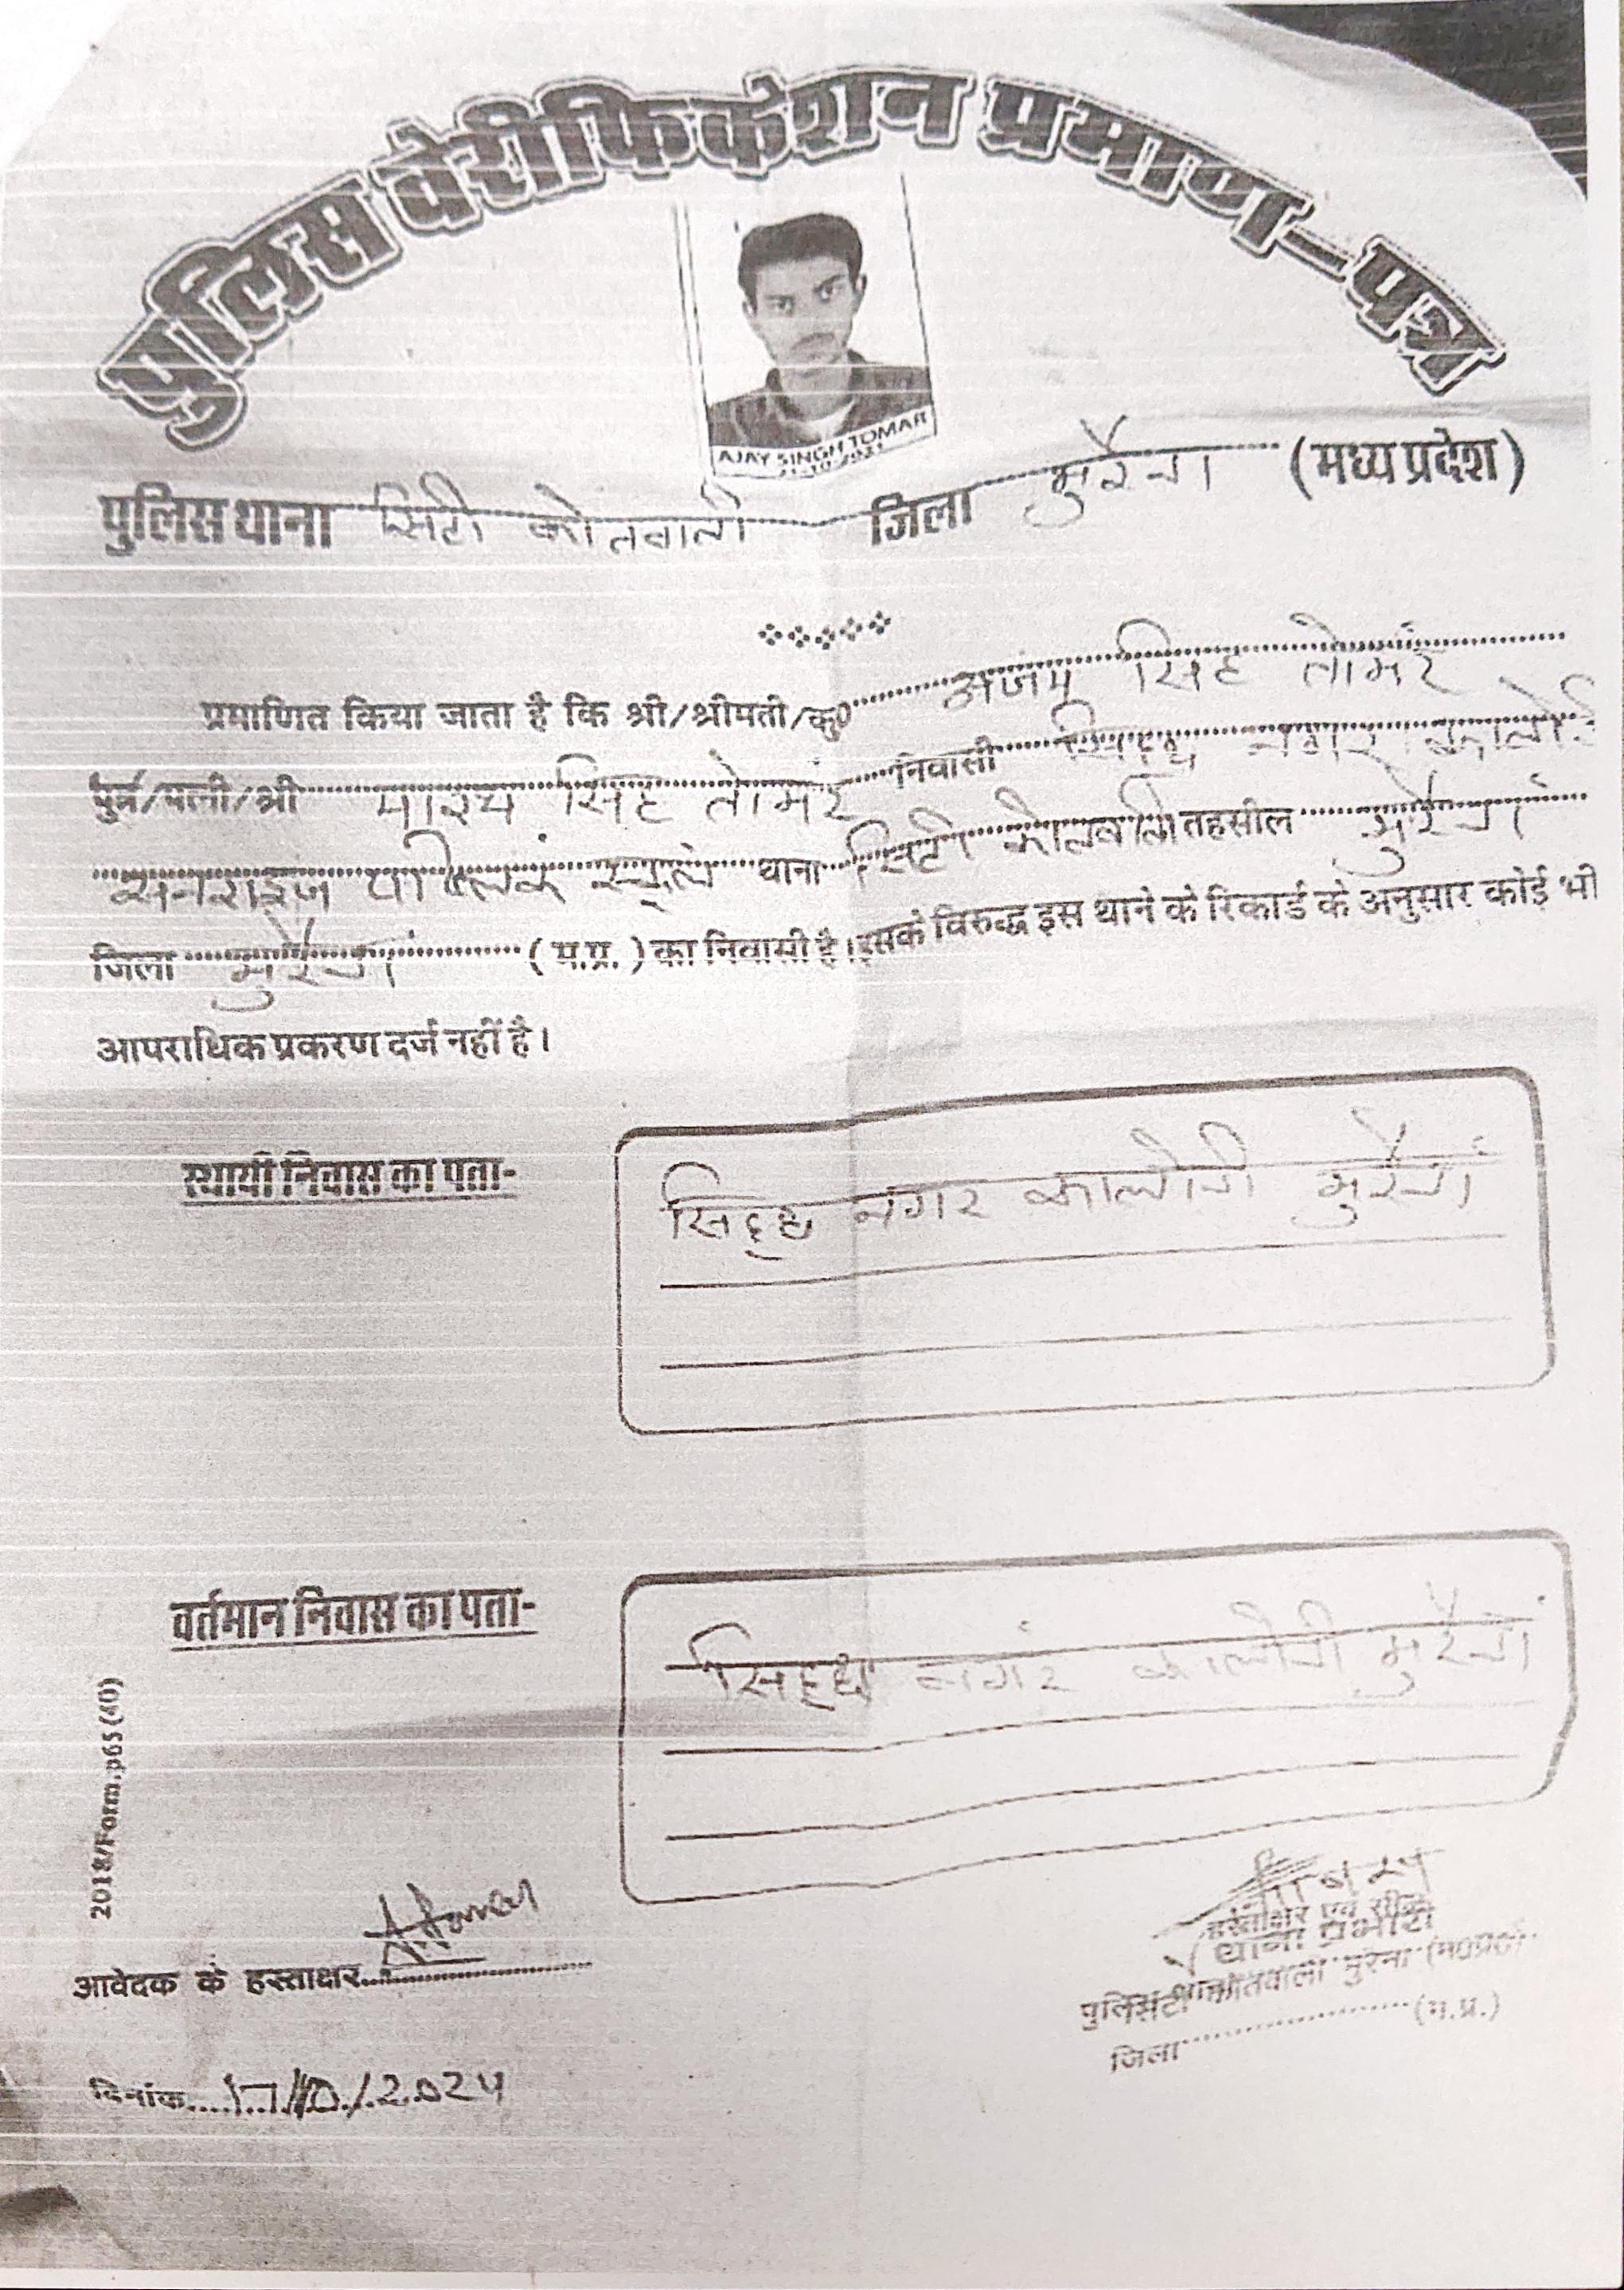 पुलिस वेरीफिकेशन प्रमाण-पत्र
AJAY SINGH TOMAR
21-10-2021
पुलिस थाना सिटी कोतवाली जिला मुरैना (मध्य प्रदेश)
प्रमाणित किया जाता है कि श्री/श्रीमती/कु० अजय सिंह तोमर
पुत्र/पत्नी/श्री सिंह तोमर निवासी सिद्ध नगर कालोनी
सनराइज पब्लिक स्कूल थाना सिटी कोतवाली तहसील मुरैना
जिला मुरैना (म.प्र.) का निवासी है। इसके विरुद्ध इस थाने के रिकार्ड के अनुसार कोई भी
आपराधिक प्रकरण दर्ज नहीं है।
स्थायी निवास का पता-
सिद्ध नगर कालोनी मुरैना
वर्तमान निवास का पता-
सिद्ध नगर कालोनी मुरैना
2018/Form.p65 (40)
हस्ताक्षर एवं सील
थाना प्रभारी
आवेदक के हस्ताक्षर A.Tomar
पुलिस थाना
सिटी कोतवाली मुरैना (म०प्र०)
जिला (म.प्र.)
दिनांक 17/10/2024